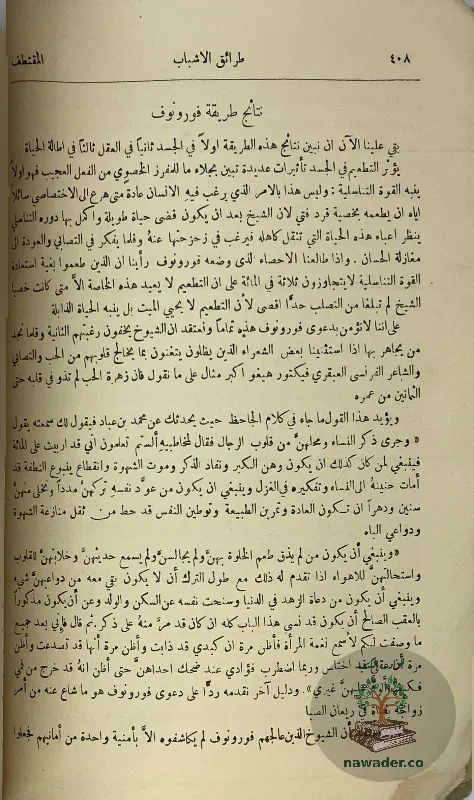 ٤٠٨ طرائق الاشباب المقتطف
نتائج طريقة فورونوف
بقي علينا الآن ان نبين نتائج هذه الطريقة اولاً في الجسد ثانياً في العقل ثالثاً في اطالة الحياة
يؤثر التطعيم في الجسد تأثيرات عديدة تبين بجلاء ما للمفرز الخصوي من الفعل العجيب فهو اولاً
ينبه القوة التناسلية : وليس هذا بالامر الذي يرغب فيه الانسان عادة متى هرع الى الاختصاصي سائلاً
اياه ان يطعمه بخصية قرد فتي لان الشيخ بعد ان يكون قضى حياة طويلة واكمل بها دوره التناسلي
ينظر اعباء هذه الحياة التي تثقل كاهله فيرغب في زحزحتها عنهُ وقلما يفكر في التصابي والعودة الى
مغازلة الحسان . واذا طالعنا الاحصاء الذي وضعه فورونوف رأينا ان الذين طعموا بغية استعادة
القوة التناسلية لا يتجاوزون ثلاثة في المائة على ان التطعيم لا يعيد هذه الخاصة الاَّ متى كانت خصيا
الشيخ لم تبلغا من التصلب حدًّا اقصى لأن التطعيم لا يحيي الميت بل ينبه الحياة الذابلة
على اننا لا نؤمن بدعوى فورونوف هذه تماماً ونعتقد ان الشيوخ يخفون رغبتهم الثانية وقلما نجد
من يجاهر بها اذا استثنينا بعض الشعراء الذين يظلون يتغنون بما يخالج قلوبهم من الحب والتصابي
والشاعر الفرنسي العبقري فيكتور هيغو اكبر مثال على ما نقول فان زهرة الحب لم تذو في قلبه حتى
الثمانين من عمره
ويؤيد هذا القول ما جاء في كلام الجاحظ حيث يحدثك عن محمد بن عباد فيقول لك سمعته يقول
« وجرى ذكر النساء ومحلهنَّ من قلوب الرجال فقال لمخاطبيه ألستم تعلمون اني قد اربيت على المائة
فينبغي لمن كان كذلك ان يكون وهن الكبر ونفاد الذكر وموت الشهوة وانقطاع ينبوع النطفة قد
أمات حنينه الى النساء وتفكيره في الغزل وينبغي ان يكون من عوَّد نفسهِ تركهنَّ مدداً وتخلى منهنَّ
سنين ودهراً ان تكون العادة وتمرين الطبيعة وتوطين النفس قد حط من ثقل منازعة الشهوة
ودواعي الباه
«وينبغي أن يكون من لم يذق طعم الخلوة بهنَّ ولم يجالسهنَّ ولم يسمع حديثهنَّ وخلابتهنَّ للقلوب
واستحالتهنَّ للاهواء اذا تقدم له ذلك مع طول الترك أن لا يكون بقي معه من دواعيهنَّ شيء
وينبغي أن يكون من دعاة الزهد في الدنيا وسنحت نفسه عن السكن والولد وعن أن يكون مذكوراً
بالعقب الصالح أن يكون قد نسي هذا الباب كله ان كان قد مرَّ منهُ على ذكر. ثم قال فإني بعد جميع
ما وصفت لكم لأسمع نغمة المرأة فأظن مرة ان كبدي قد ذابت وأظن مرة أنها قد انصدعت وأظن
مرة أن عقلي قد اختلس وربما اضطرب فؤادي عند ضحك احداهنَّ حتى أظن انهُ قد خرج من في
غيري» . ودليل آخر نقدمه ردًّا على دعوى فورونوف هو ما شاع عنه من أمر
في ريعان الصبا
أن الشيوخ الذين عالجهم فورونوف لم يكاشفوه الاَّ بأمنية واحدة من أمانيهم فجعلوا
nawader.co